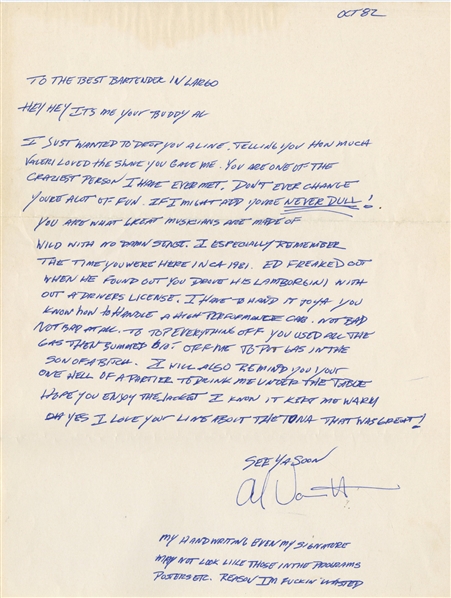 OCT 82
TO THE BEST BARTENDER IN LARGO
HEY HEY ITS ME YOUR BUDDY AL
I JUST WANTED TO DROP YOU A LINE. TELLING YOU HOW MUCH
VALERI LOVED THE SNAKE YOU GAVE ME. YOU ARE ONE OF THE
CRAZIEST PERSON I HAVE EVER MET. DON'T EVER CHANGE
YOURE ALOT OF FUN. IF I MIGHT ADD YOURE NEVER DULL!
YOU ARE WHAT GREAT MUSICIANS ARE MADE OF
WILD WITH NO DAMN SENSE. I ESPECIALLY REMEMBER
THE TIME YOU WERE HERE IN CA 1981. ED FREAKED OUT
WHEN HE FOUND OUT YOU DROVE HIS LAMBORGINI WITH
OUT A DRIVERS LICENSE. I HAVE TO HAND IT TO YA YOU
KNOW HOW TO HANDLE A HIGH PERFORMANCE CAR. NOT BAD
NOT BAD AT ALL. TO TOP EVERYTHING OFF YOU USED ALL THE
GAS THEN BUMMED OFF ME TO PUT GAS IN THE
SON OF A BITCH. I WILL ALSO REMIND YOU YOUR
ONE HELL OF A PARTIER TO DRINK ME UNDER THE TABLE
HOPE YOU ENJOY THE JACKET I KNOW IT KEPT ME WARM
OH YES I LOVE YOUR LINE ABOUT THE TUNA THAT WAS GREAT!
SEE YA SOON
MY HANDWRITING EVEN MY SIGNATURE
MAY NOT LOOK LIKE THOSE IN THE PROGRAMS
POSTERS ETC. REASON I'M FUCKIN WASTED